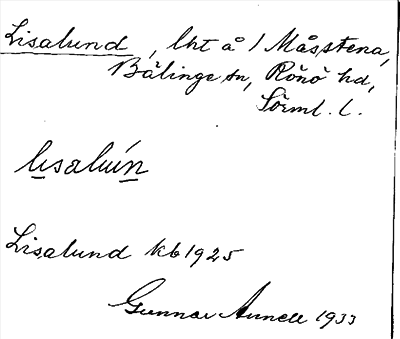 Lisalund, lht å 1 Måsstena,
Bälinge sn, Rönö hd,
Sörml. l.
lisalún
Lisalund kb 1925
Gunnar Annell 1933